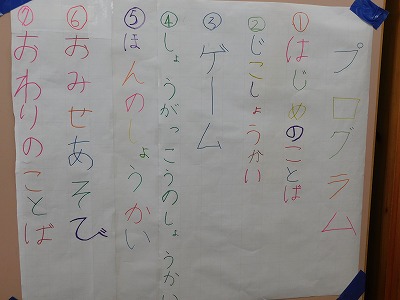 プログラム
①はじめのことば
②じこしょうかい
③ゲーム
④しょうがっこうのしょうかい
⑤ほんのしょうかい
⑥おみせあそび
⑦おわりのことば